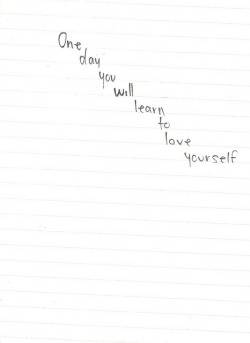 One
day
you
will
learn
to
love
yourself